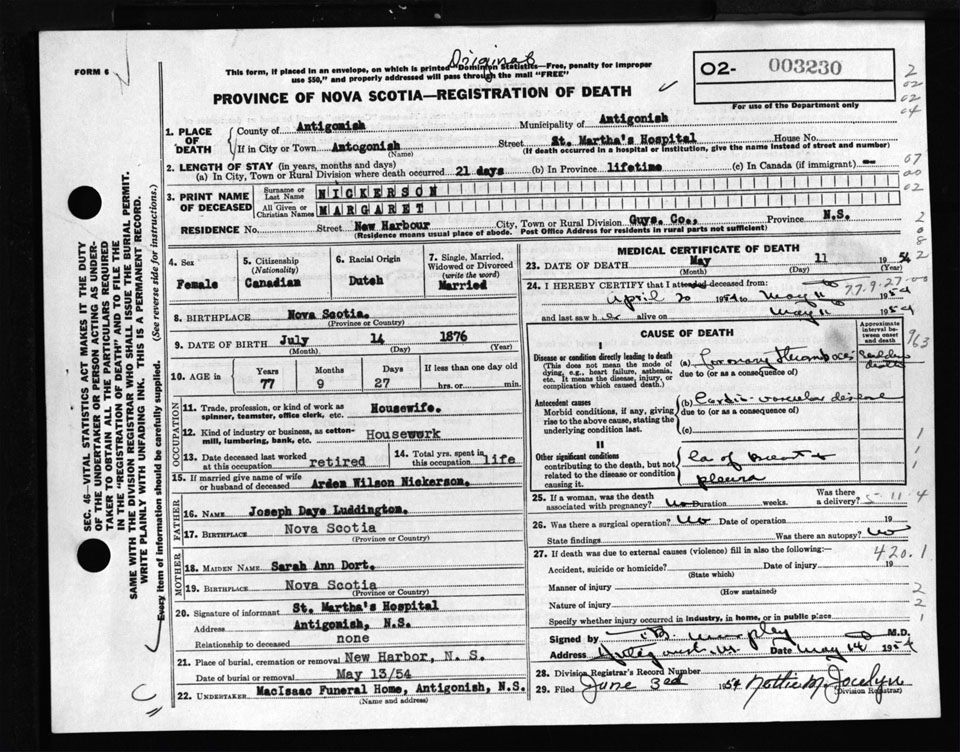 FORM 6
Original
This form, if placed in an envelope, on which is printed "Dominion Statistics—Free, penalty for improper
use $50," and properly addressed will pass through the mail "FREE"
PROVINCE OF NOVA SCOTIA—REGISTRATION OF DEATH
02- 003230
For use of the Department only
1. PLACE OF DEATH
County of Antigonish Municipality of Antigonish
If in City or Town Antogonish Street St. Martha's Hospital House No.
(Name) (If death occurred in a hospital or institution, give the name instead of street and number)
2. LENGTH OF STAY (in years, months and days)
(a) In City, Town or Rural Division where death occurred 21 days (b) In Province lifetime (c) In Canada (if immigrant) --
3. PRINT NAME OF DECEASED
Surname or Last Name NICKERSON
All Given or Christian Names MARGARET
RESIDENCE No. Street New Harbour City, Town or Rural Division Guys. Co., Province N.S.
(Residence means usual place of abode. Post Office Address for residents in rural parts not sufficient)
4. Sex Female
5. Citizenship (Nationality) Canadian
6. Racial Origin Dutch
7. Single, Married, Widowed or Divorced (write the word) Married
8. BIRTHPLACE Nova Scotia.
(Province or Country)
9. DATE OF BIRTH July 14 1876
(Month) (Day) (Year)
10. AGE in Years Months Days If less than one day old
77 9 27 hrs. or min.
OCCUPATION
11. Trade, profession, or kind of work as spinner, teamster, office clerk, etc. Housewife.
12. Kind of industry or business, as cotton-mill, lumbering, bank, etc. Housework
13. Date deceased last worked at this occupation retired
14. Total yrs. spent in this occupation life
15. If married give name of wife or husband of deceased Arden Wilson Nickerson.
FATHER
16. NAME Joseph Daye Luddington.
17. BIRTHPLACE Nova Scotia
(Province or Country)
MOTHER
18. MAIDEN NAME Sarah Ann Dort.
19. BIRTHPLACE Nova Scotia
(Province or Country)
20. Signature of informant St. Martha's Hospital
Address Antigonish, N.S.
Relationship to deceased none
21. Place of burial, cremation or removal New Harbor, N. S.
Date of burial or removal May 13/54
22. UNDERTAKER MacIsaac Funeral Home, Antigonish, N.S.
(Name and address)
MEDICAL CERTIFICATE OF DEATH
23. DATE OF DEATH May 11 1954
(Month) (Day) (Year)
24. I HEREBY CERTIFY that I attended deceased from:
April 20 1954 to May 11 1954
and last saw her alive on May 11 1954
77.9.27.00
CAUSE OF DEATH
Approximate interval between onset and death
I
Disease or condition directly leading to death
(This does not mean the mode of dying, e.g., heart failure, asthenia, etc. It means the disease, injury, or complication which caused death.)
(a) Coronary Thrombosis Sudden death
due to (or as a consequence of)
Antecedent causes
Morbid conditions, if any, giving rise to the above cause, stating the underlying condition last.
(b) Cardio-vascular disease
due to (or as a consequence of)
(c)
II
Other significant conditions
contributing to the death, but not related to the disease or condition causing it.
Ca of breast &
pleura
25. If a woman, was the death associated with pregnancy? No Duration weeks. Was there a delivery?
5-11-4
26. Was there a surgical operation? No Date of operation 19
State findings Was there an autopsy? No
27. If death was due to external causes (violence) fill in also the following:—
420.1
Accident, suicide or homicide? Date of injury 19
(State which)
Manner of injury
(How sustained)
Nature of injury
Specify whether injury occurred in industry, in home, or in public place
Signed by M.D.
Address Date May 14 1954
28. Division Registrar's Record Number
29. Filed June 3rd 1954 Nottie M. Jocelyn
(Division Registrar)
SEC. 46—VITAL STATISTICS ACT MAKES IT THE DUTY
OF THE UNDERTAKER OR PERSON ACTING AS UNDER-
TAKER TO OBTAIN ALL THE PARTICULARS REQUIRED
IN THE "REGISTRATION OF DEATH" AND TO FILE THE
SAME WITH THE DIVISION REGISTRAR WHO SHALL ISSUE THE BURIAL PERMIT.
WRITE PLAINLY WITH UNFADING INK. THIS IS A PERMANENT RECORD.
Every item of information should be carefully supplied. (See reverse side for instructions.)
2
02
02
04
07
00
02
2
0
8
2
963
1
1
1
2
2
1